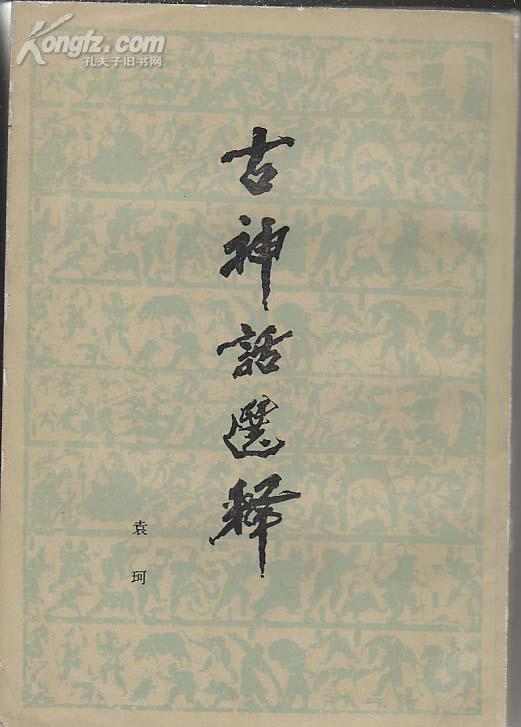 Kongfz.com
孔夫子旧书网
古神話選釋
袁珂